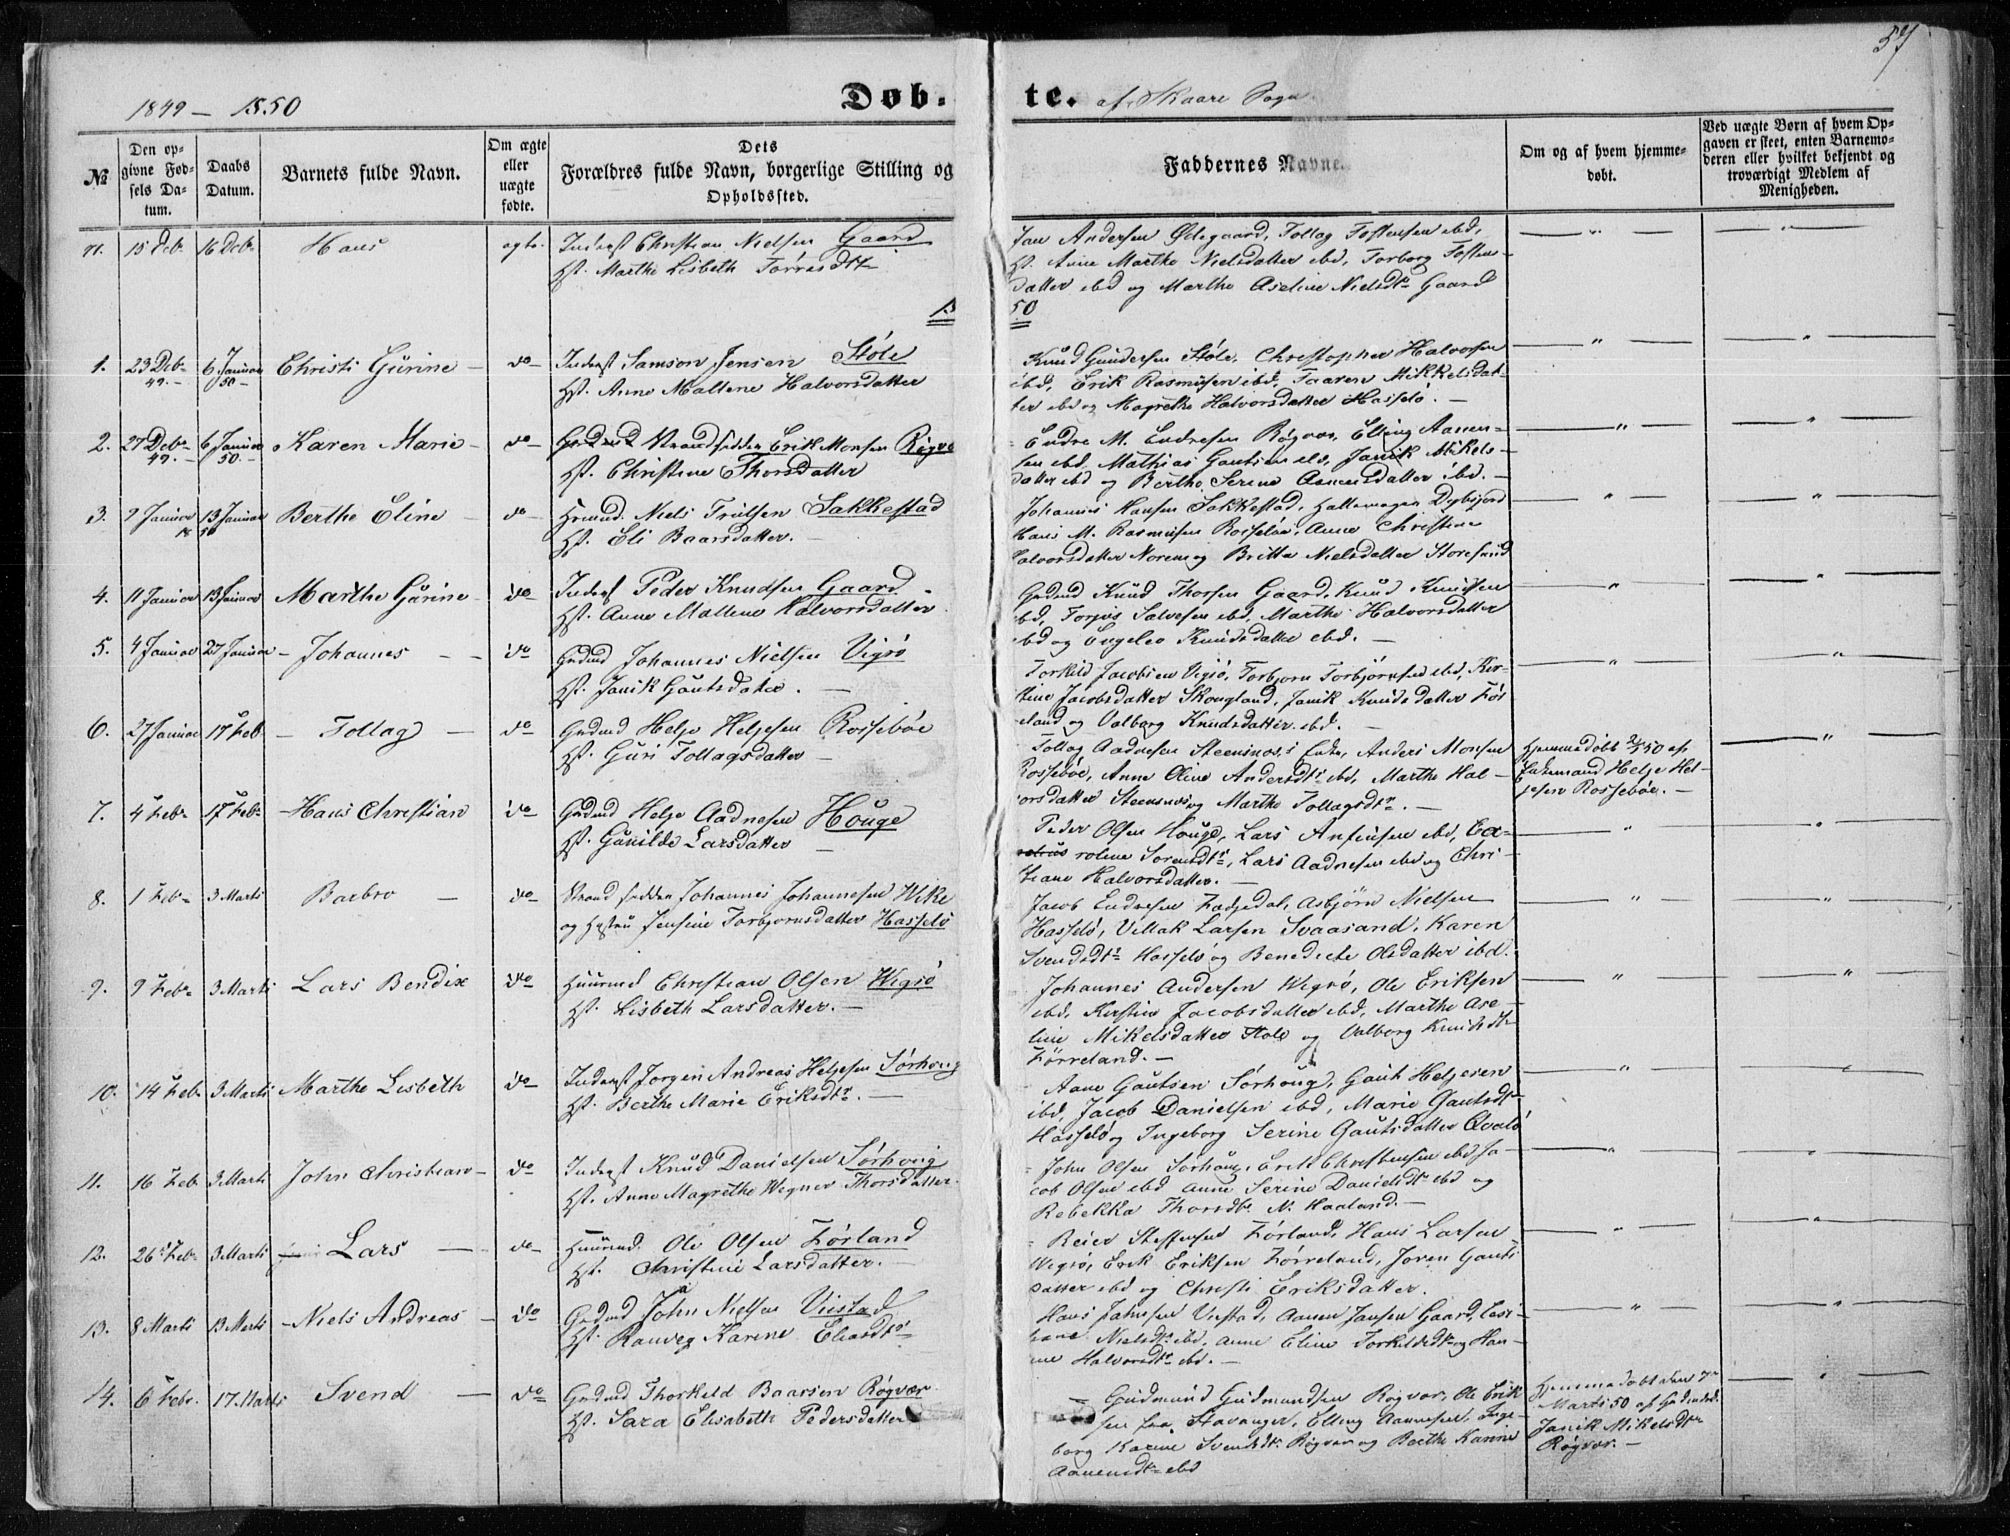 57
1849 - 1850
Døb-
te. af Skaare Sogn
№
Den op-
givne Fød-
sels Da-
tum.
Daabs
Datum.
Barnets fulde Navn.
Om ægte
eller
uægte
fødte.
Dets
Forældres fulde Navn, borgerlige Stilling og
Opholdssted.
Faddernes Navne.
Om og af hvem hjemme-
døbt.
Ved uægte Børn af hvem Op-
gaven er skeet, enten Barnemo-
deren eller hvilket bekjendt og
troværdigt Medlem af
Menigheden.
71. 15 Deb 16 Deb Hans ægte Inderst Christian Nielsen Gaard
Hst. Marthe Lisbeth Torresdtr
Jan Andersen Ødegaard, Tollag Tostensen ibd,
Hst. Anne Marthe Nielsdatter ibd, Torborg Tosten-
datter ibd og Marthe Aseline Nielsdtr Gaard
1850
1. 23 Deb 49. 6 Januar 50 Christi Gurine do Inderst Samson Jensen Støle
Hst. Anne Maltene Halvorsdatter
Knud Gundersen Støle, Christopher Halvorsen
ibd, Erik Rasmusen ibd, Taaren Mikkelsdat-
ter ibd og Magrethe Halvorsdatter Hasselø.
2. 27 Deb 49. 6 Januar 50. Karen Marie do Strandsidder Erik Monsen Røgvær
Hst. Christine Thorsdatter
Endre M. Endresen Røgvær, Elling Aanen-
sen ibd, Mathias Gautsen ibd, Janik Mikels-
datter ibd og Berthe Serine Asmundsdatter ibd.
3. 7 Januar 13 Januar 50 Berthe Eline do Hrmd. Niels Trulsen Sakkestad
Hst. Eli Baarsdatter.
Johannes Hansen Sakkestad, Dybsjord
Hans M. Rasmusen Rossebøe, Anne Christine
Halvorsdatter Norem og Britta Nielsdatter Storesund
4. 11 Januar 13 Januar Marthe Gurine do Inderst Peder Knudsen Gaard
Hst. Anne Maltene Halvorsdatter
Grdmd Knud Thorsen Gaard, Knud Knudsen
ibd, Torjus Salvesen ibd, Marthe Halvorsdatter
ibd og Engeleo Knudsdatter ibd.
5. 4 Januar 27 Januar Johannes do Grdmd Johannes Nielsen Vigsø
Hst. Janik Gautsdatter.
Torkild Jacobsen Vigsø, Torbjorn Torbjørnsen ibd, Kir-
stine Jacobsdatter Skougland, Janik Knudsdatter Før
reland og Valborg Knudsdatter ibd.
6. 27 Januar 17 Feb Tollag do Grdmd Helje Heljesen Rossebøe
Hst. Guri Tollagsdatter
Tollag Aadnesen Steensnos, Anders Monsen
Rossebøe, Anne Oline Andersdtr ibd, Marthe Hal-
vorsdatter Steensnos og Marthe Tollagsdtr.
Hjemmedøbt 2/2 50 af
Gaardmand Helje Hel-
jesen Rossebøe.
7. 4 Feb 17 Feb Hans Christian do Grdmd Helje Aadnesen Houge
Hst. Gunilde Larsdatter
Peder Olsen Houge, Lars Anfinsen ibd, Ca-
roline Sorensdtr, Lars Aadnesen ibd og Chri-
stiane Halvorsdatter.
8. 1 Feb 3 Marti Barbro do Strandsidder Johannes Johannesen Wike
og Hustru Jensine Torbjornsdatter Hasselø
Jacob Endresen Førjedal, Asbjørn Nielsen
Hasselø, Villak Larsen Svaasand, Karen
Svendsdtr Hasselø og Benedicte Olsdatter ibd.
9. 9 Feb 3 Marti Lars Bendix do Huusmd Christian Olsen Wigsø
Hst. Lisbeth Larsdatter.
Johannes Andersen Wigsø, Ole Eriksen
ibd, Kirstine Jacobsdatter ibd, Marthe Ase-
line Mikelsdatter Støle og Valborg Knudsdtr
Førreland.
10. 14 Feb 3 Marti Marthe Lisbeth do Inderst Jørgen Andreas Heljesen Sørhoug
Hst. Berthe Marie Eriksdtr.
Aane Gautsen Sørhoug, Gaut Heljesen
ibd, Jacob Danielsen ibd, Marie Gautsdtr
Hasselø og Ingeborg Serine Gautsdatter Qvalø
11. 16 Feb 3 Marti John Christian do Inderst Knud Danielsen Sørhoug
Hst. Anne Magrethe Wegner Thorsdatter.
John Olsen Sørhoug, Erik Christensen ibd, Ja-
cob Olsen ibd Anne Serine Danielsdtr ibd og
Rebekka Thorsdtr N. Haaland.
12. 26 Feb 3 Marti Lars do Huusmd. Ole Olsen Førland
Hst. Christine Larsdatter.
Reier Steffensen Førland, Hans Larsen
Wigsø, Erik Eriksen Førreland, Joren Gauts
datter ibd og Christi Eriksdatter.
13. 8 Marti 13 Marti Niels Andreas do Grdmd John Nielsen Viestad
Hst. Ranveg Karine Eliasdtr
Hans Jahnsen Viestad, Aanen Jansen Gaard,
Nielsdtr ibd, Anne Eline Torkildsdtr og Han-
ne Halvorsdtr ibd.
14. 6 Febr. 17. Marti Svend do Grdmd Thorkeld Baarsen Røgvær
Hst. Sara Elisabeth Pedersdatter
Gudmund Gudmundsen Røgvær, Ole Erik
sen fra Stavanger, Elling Aanensen, Inge-
borg Karine Svendsdtr Røgvær og Berthe Karine
Aanensdtr ibd
Hjemmedøbt den 7de
Marti 50 af
Janik Mikelsdtr
Røgvær.